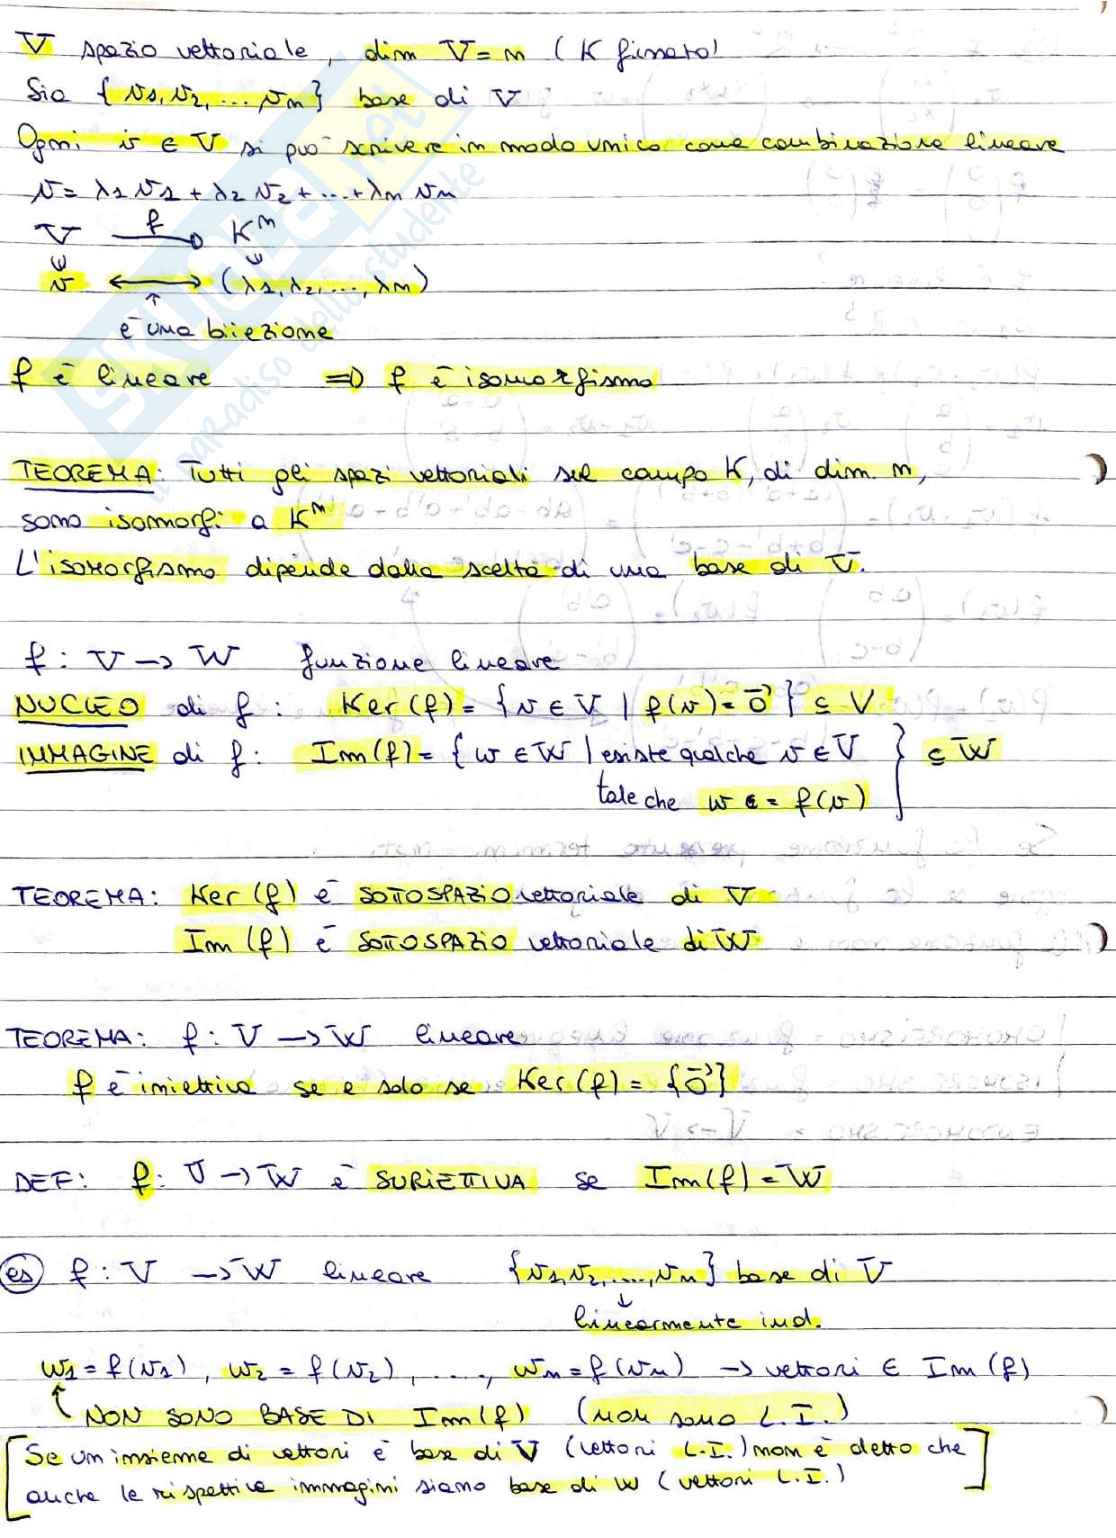 V spazio vettoriale, dim V = n (K fissato)
Sia {v1, v2, ..., vn} base di V
Ogni v ∈ V si può scrivere in modo unico come combinazione lineare
v = λ1 v1 + λ2 v2 + ... + λn vn
V —f→ K^n
v ←→ (λ1, λ2, ..., λn)
↑
è una biiezione
f è lineare ⇒ f è isomorfismo
TEOREMA: Tutti gli spazi vettoriali sul campo K, di dim. n,
sono isomorfi a K^n
L'isomorfismo dipende dalla scelta di una base di V.
f : V → W funzione lineare
NUCLEO di f : Ker (f) = {v ∈ V | f(v) = 0⃗} ⊆ V
IMMAGINE di f : Im (f) = {w ∈ W | esiste qualche v ∈ V } ⊆ W
tale che w = f(v)
TEOREMA: Ker (f) è SOTTOSPAZIO vettoriale di V
Im (f) è SOTTOSPAZIO vettoriale di W
TEOREMA: f : V → W lineare
f è iniettiva se e solo se Ker (f) = {0⃗}
DEF: f : V → W è SURIETTIVA se Im (f) = W
es f : V → W lineare {v1, v2, ..., vn} base di V
↓
linearmente ind.
w1 = f(v1), w2 = f(v2), ...., wn = f(vn) → vettori ∈ Im (f)
NON SONO BASE DI Im (f) (non sono L.I.)
[Se un insieme di vettori è base di V (vettori L.I.) non è detto che
anche le rispettive immagini siano base di W (vettori L.I.)]
SKUOLA.net
il paradiso dello studente